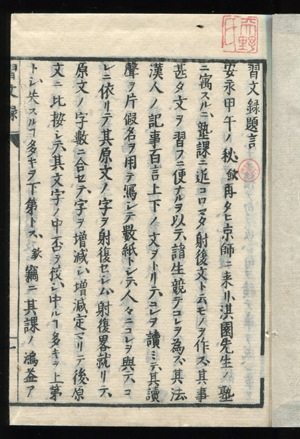 習文録題言
安永甲午ノ秋歛再タヒ京師ニ来リ淇園先生ノ塾
ニ寓スルニ塾課ニ近コロマタ射復文ト云モノヲ作ス其事
甚タ文ヲ習フニ便ナルヲ以テ諸生競テコレヲ為ス其法
漢人ノ記事百言上下ノ文ヲトリテコレヲ讀ミテ其讀
聲ヲ片假名ヲ用テ寫シテ数紙トシテ人々ニコレヲ與ヘコ
レニ依リテ其原文ノ字ヲ射復セシム射復畧就リテ
原文ノ字數ニ合セテ字ヲ増減シ増減定マリテ後原
文ニ比挍シテ其文字ノ中否ヲ挍シ中ルヿ多キヲ上第
トシ失スルヿ多キヲ下第トス歛竊ニ其課ノ鴻益ア
習文録
一